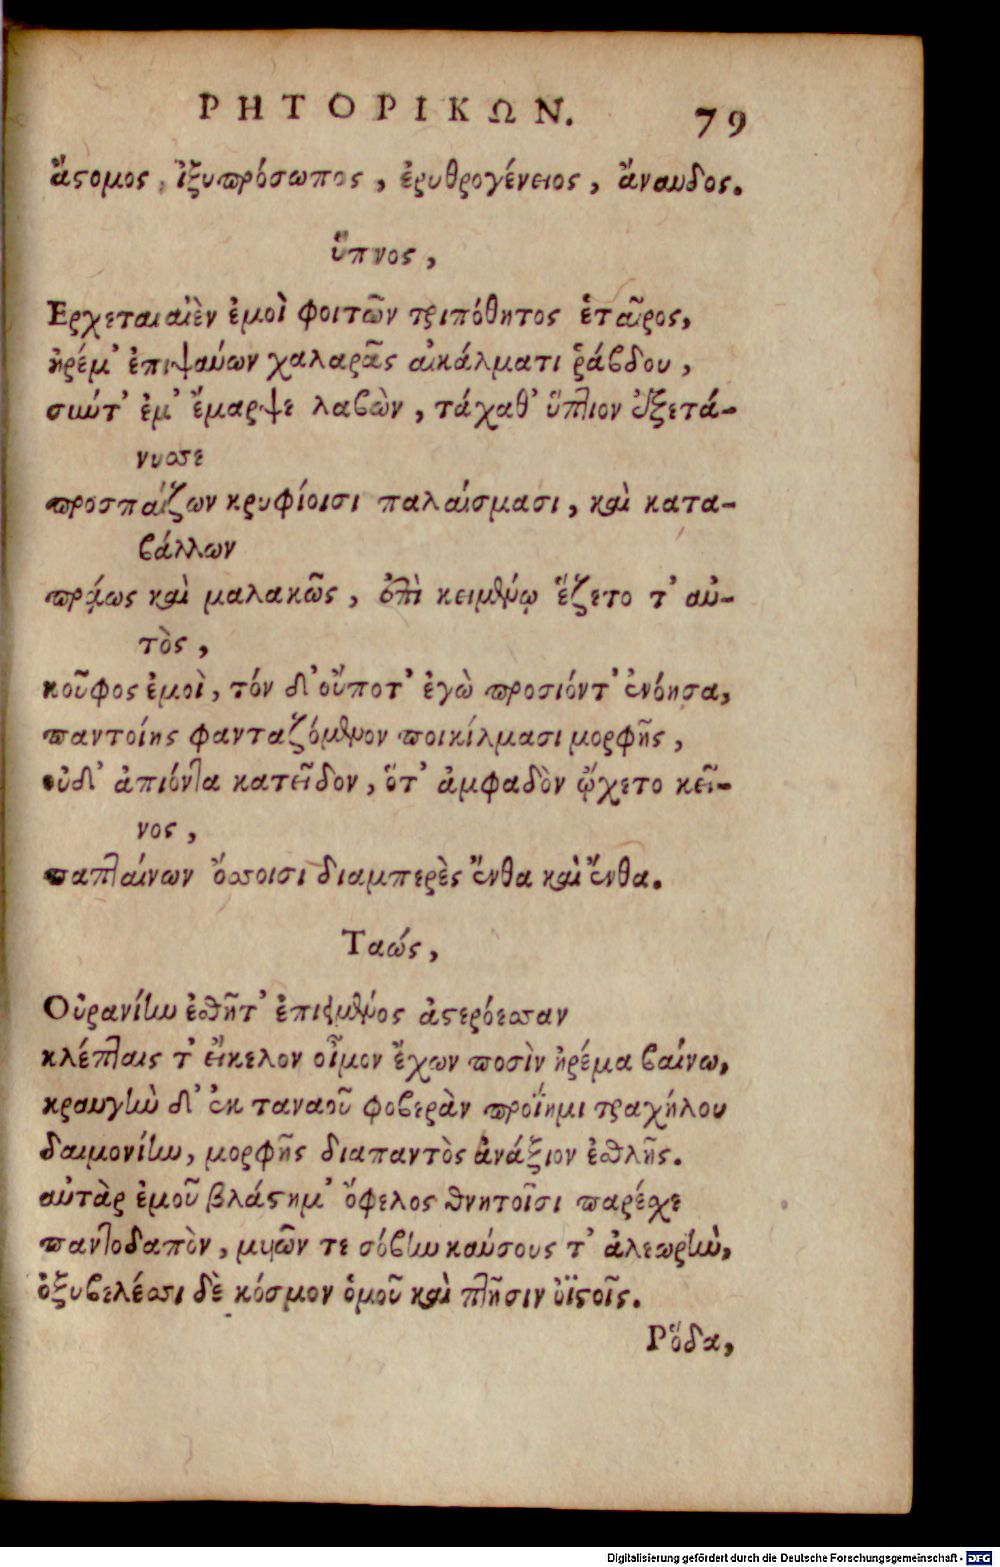 ΡΗΤΟΡΙΚΩΝ. 79
ἄστομος, ἰξυπρόσωπος, ἐρυθρογένειος, ἄναυδος.
ὕπνος,
Ερχεται αἰὲν ἐμοὶ φοιτῶν τριπόθητος ἑταῖρος,
ἠρέμ' ἐπιψαύων χαλαρᾶς αἰκάλματι ῥάβδου,
σιωτ' ἐμ' ἔμαρψε λαβὼν, τάχαθ' ὕπτιον ἐξετά-
νυσσε
προσπαίζων κρυφίοισι παλαίσμασι, καὶ κατα-
βάλλων
πρᾴως καὶ μαλακῶς, ἐπὶ κειμένῳ ἕζετο τ' αὐ-
τὸς,
κοῦφος ἐμοὶ, τόν δ' οὔποτ' ἐγὼ προσιόντ' ἐνόησα,
παντοίης φανταζόμενον ποικίλμασι μορφῆς,
οὐδ' ἀπιόντα κατεῖδον, ὅτ' ἀμφαδὸν ᾤχετο κεῖ-
νος,
παπταίνων ὄσσοισι διαμπερὲς ἔνθα καὶ ἔνθα.
Ταώς,
Οὐρανίην ἐσθῆτ' ἐπιειμένος ἀστερόεσσαν
κλέπταις τ' εἴκελον οἶμον ἔχων ποσὶν ἠρέμα βαίνω,
κραυγὴν δ' ἐκ ταναοῦ φοβερὰν προΐημι τραχήλου
δαιμονίην, μορφῆς διαπαντὸς ἀνάξιον ἐσθλῆς.
αὐτὰρ ἐμοῦ βλάστημ' ὄφελος θνητοῖσι παρέχε
παντοδαπὸν, μυῶν τε σόβην καύσους τ' ἀλεωρὴν,
ὀξυβελέσσι δὲ κόσμον ὁμοῦ καὶ πτῆσιν ὀϊστοῖς.
Ρόδα,
Digitalisierung gefördert durch die Deutsche Forschungsgemeinschaft - DFG